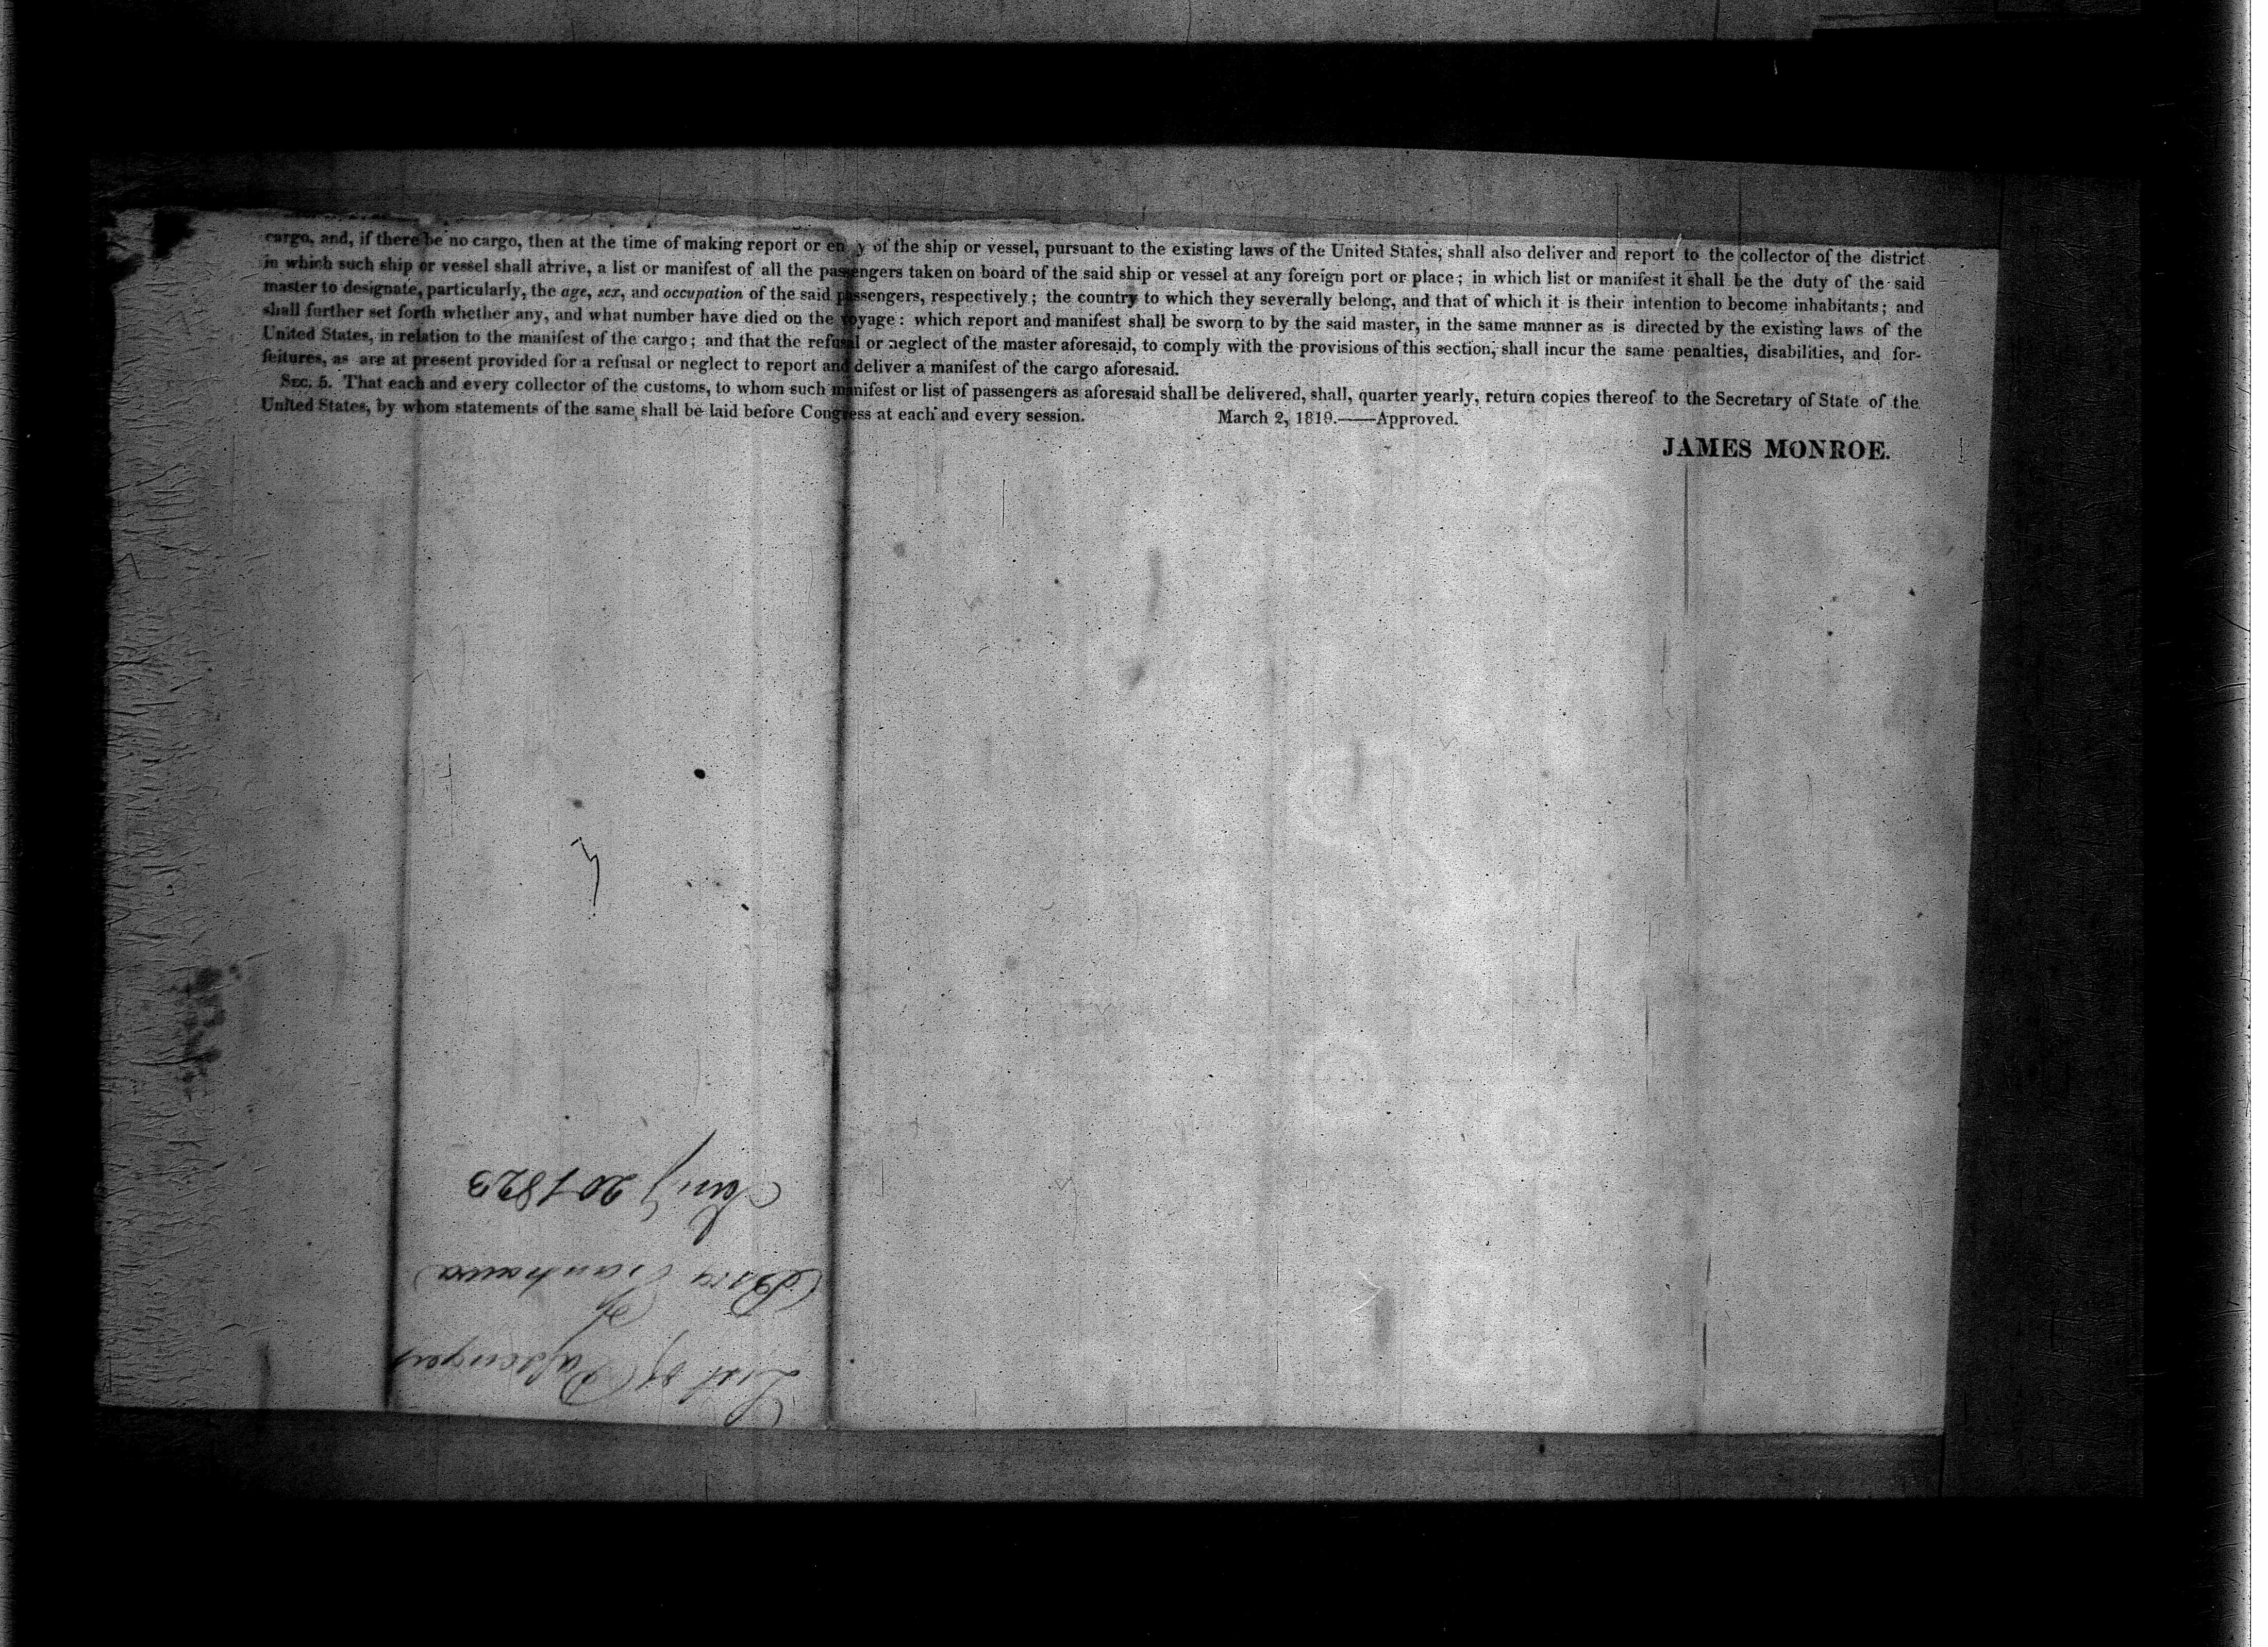 cargo, and, if there be no cargo, then at the time of making report or en y of the ship or vessel, pursuant to the existing laws of the United States, shall also deliver and report to the collector of the district
in which such ship or vessel shall arrive, a list or manifest of all the passengers taken on board of the said ship or vessel at any foreign port or place; in which list or manifest it shall be the duty of the said
master to designate, particularly, the age, sex, and occupation of the said passengers, respectively; the country to which they severally belong, and that of which it is their intention to become inhabitants; and
shall further set forth whether any, and what number have died on the voyage: which report and manifest shall be sworn to by the said master, in the same manner as is directed by the existing laws of the
United States, in relation to the manifest of the cargo; and that the refusal or neglect of the master aforesaid, to comply with the provisions of this section, shall incur the same penalties, disabilities, and for-
feitures, as are at present provided for a refusal or neglect to report and deliver a manifest of the cargo aforesaid.
Sec. 5. That each and every collector of the customs, to whom such manifest or list of passengers as aforesaid shall be delivered, shall, quarter yearly, return copies thereof to the Secretary of State of the
United States, by whom statements of the same shall be laid before Congress at each and every session. March 2, 1819.——Approved.
JAMES MONROE.
List of Passengers
Brig
20 1823